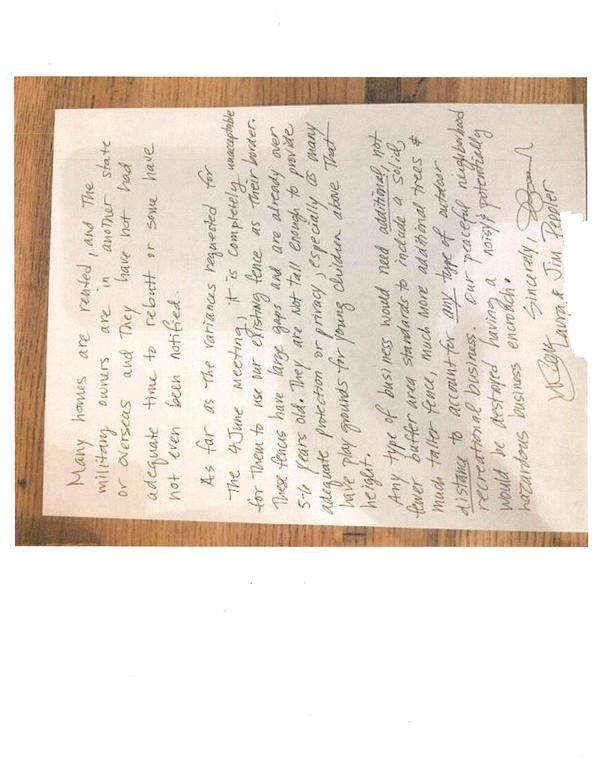 Many homes are rented, and the
military owners are in another state
or overseas and they have not had
adequate time to rebutt or some have
not even been notified.
As far as the variances requested for
the 4 June meeting, it is completely unacceptable
for them to use our existing fence as their border.
These fences have large gaps and are already over
5-6 years old. They are not tall enough to provide
adequate protection or privacy, especially as many
have play grounds for young children above that
height.
Any type of business would need additional, not
fewer buffer area standards to include a solid,
much taller fence, much more additional trees &
distance to account for any type of outdoor
recreational business. Our peaceful neighborhood
would be destroyed having a noisy & potentially
hazardous business encroach.
Sincerely
Laura & Jim Peppler